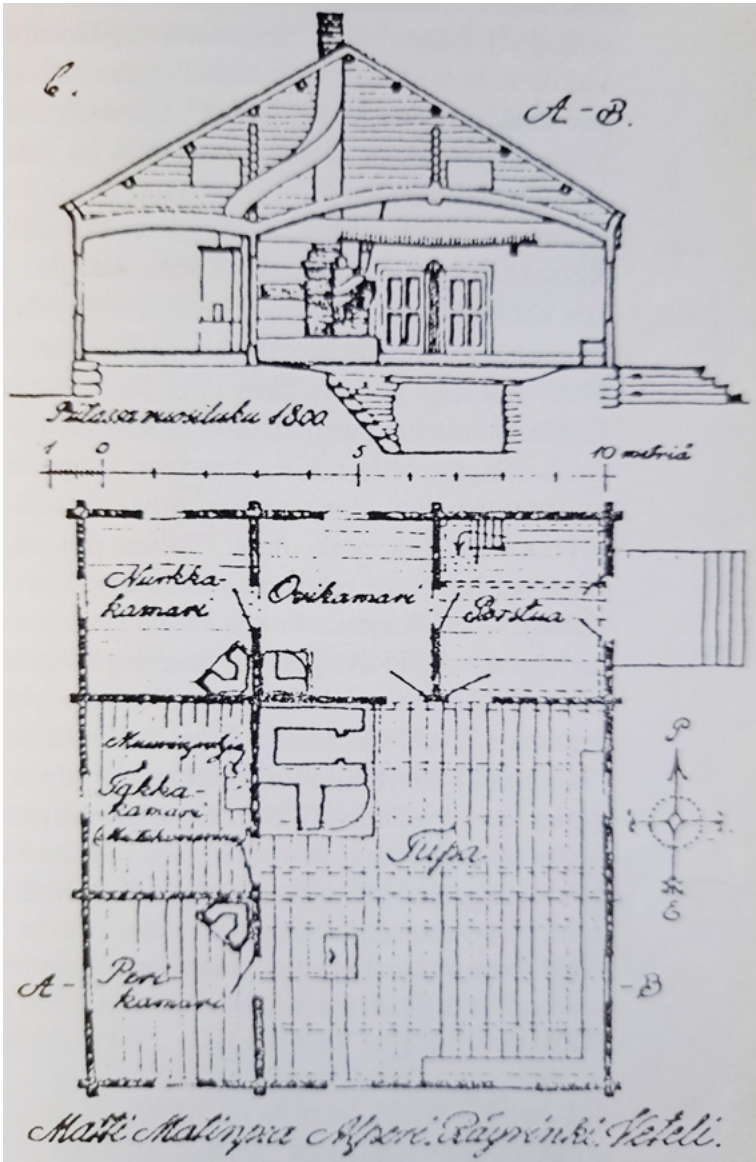 6.
A - B.
vuosiluku 1800
1 0 5 10 metriä
Nurkka-
kamari
Ovikamari
Porstua
Takka-
kamari
Tupa
P
E
Peri-
kamari
A -
- B
Matti Räyrinki. Veteli.